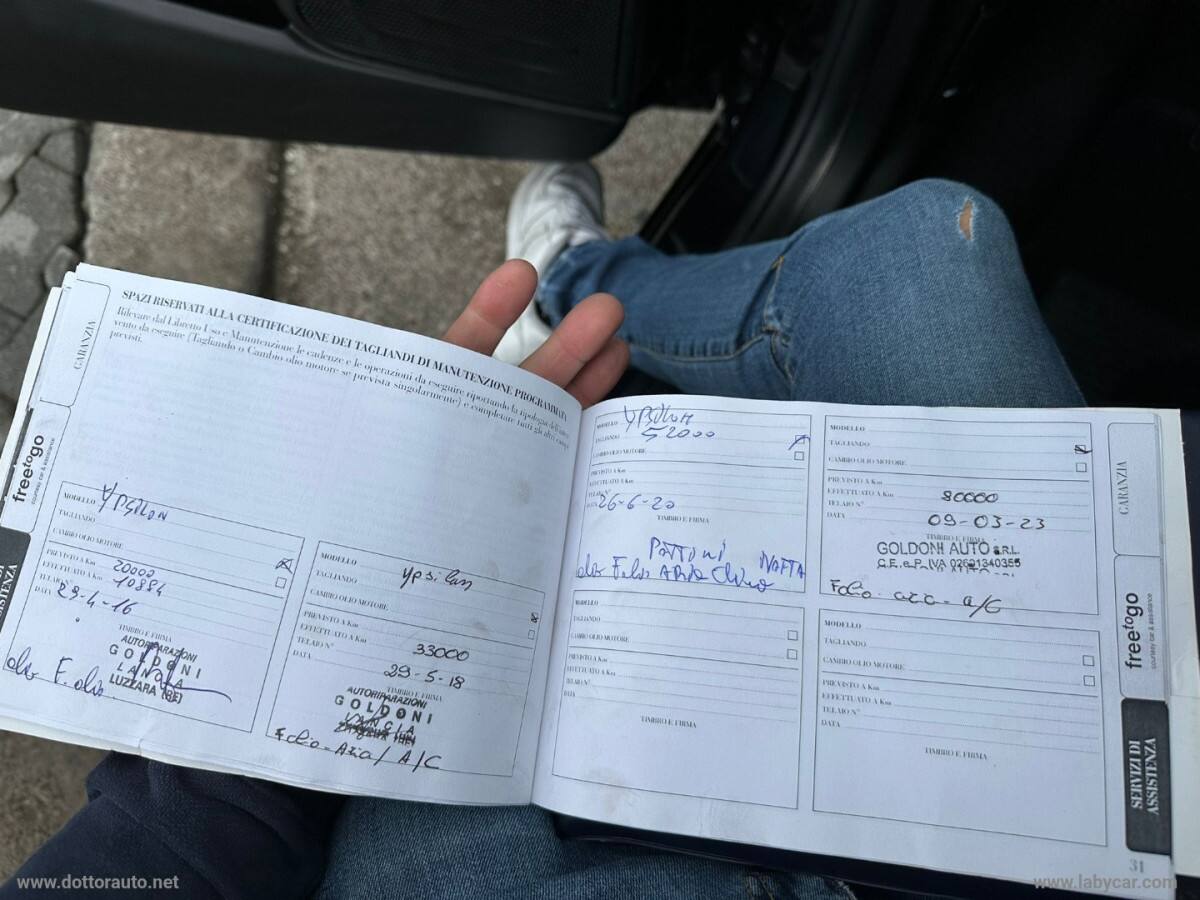 SPAZI RISERVATI ALLA CERTIFICAZIONE DEI TAGLIANDI DI MANUTENZIONE PROGRAMMATA
Rilevare dal Libretto Uso e Manutenzione le cadenze e le operazioni da eseguire riportando la tipologia dell'intervento da eseguire (Tagliando o Cambio olio motore se prevista singolarmente) e completare tutti gli altri campi
previsti.
GARANZIA
freetogo
courtesy car & assistance
SERVIZI DI
ASSISTENZA
MODELLO YPSILON
TAGLIANDO
CAMBIO OLIO MOTORE
PREVISTO A Km 20000
EFFETTUATO A Km 10884
TELAIO N°
DATA 29-4-16
TIMBRO E FIRMA
AUTORIPARAZIONI
GOLDONI
LUZZARA (RE)
F. olio
MODELLO
Ypsilon
TAGLIANDO
CAMBIO OLIO MOTORE
PREVISTO A Km
EFFETTUATO A Km 33000
TELAIO N°
DATA 29-5-18
TIMBRO E FIRMA
AUTORIPARAZIONI
GOLDONI
A/C
MODELLO YPSILON
TAGLIANDO 52000
CAMBIO OLIO MOTORE
PREVISTO A Km
EFFETTUATO A Km
TELAIO N°
DATA 26-6-20
TIMBRO E FIRMA
MODELLO
TAGLIANDO
CAMBIO OLIO MOTORE
PREVISTO A Km
EFFETTUATO A Km 80000
TELAIO N°
DATA 09-03-23
TIMBRO E FIRMA
GOLDONI AUTO S.R.L.
C.F. e P. IVA 02691340355
A/C
MODELLO
TAGLIANDO
CAMBIO OLIO MOTORE
PREVISTO A Km
EFFETTUATO A Km
TELAIO N°
DATA
TIMBRO E FIRMA
MODELLO
TAGLIANDO
CAMBIO OLIO MOTORE
PREVISTO A Km
EFFETTUATO A Km
TELAIO N°
DATA
TIMBRO E FIRMA
GARANZIA
freetogo
courtesy car & assistance
SERVIZI DI
ASSISTENZA
31
www.dottorauto.net
www.labycar.com